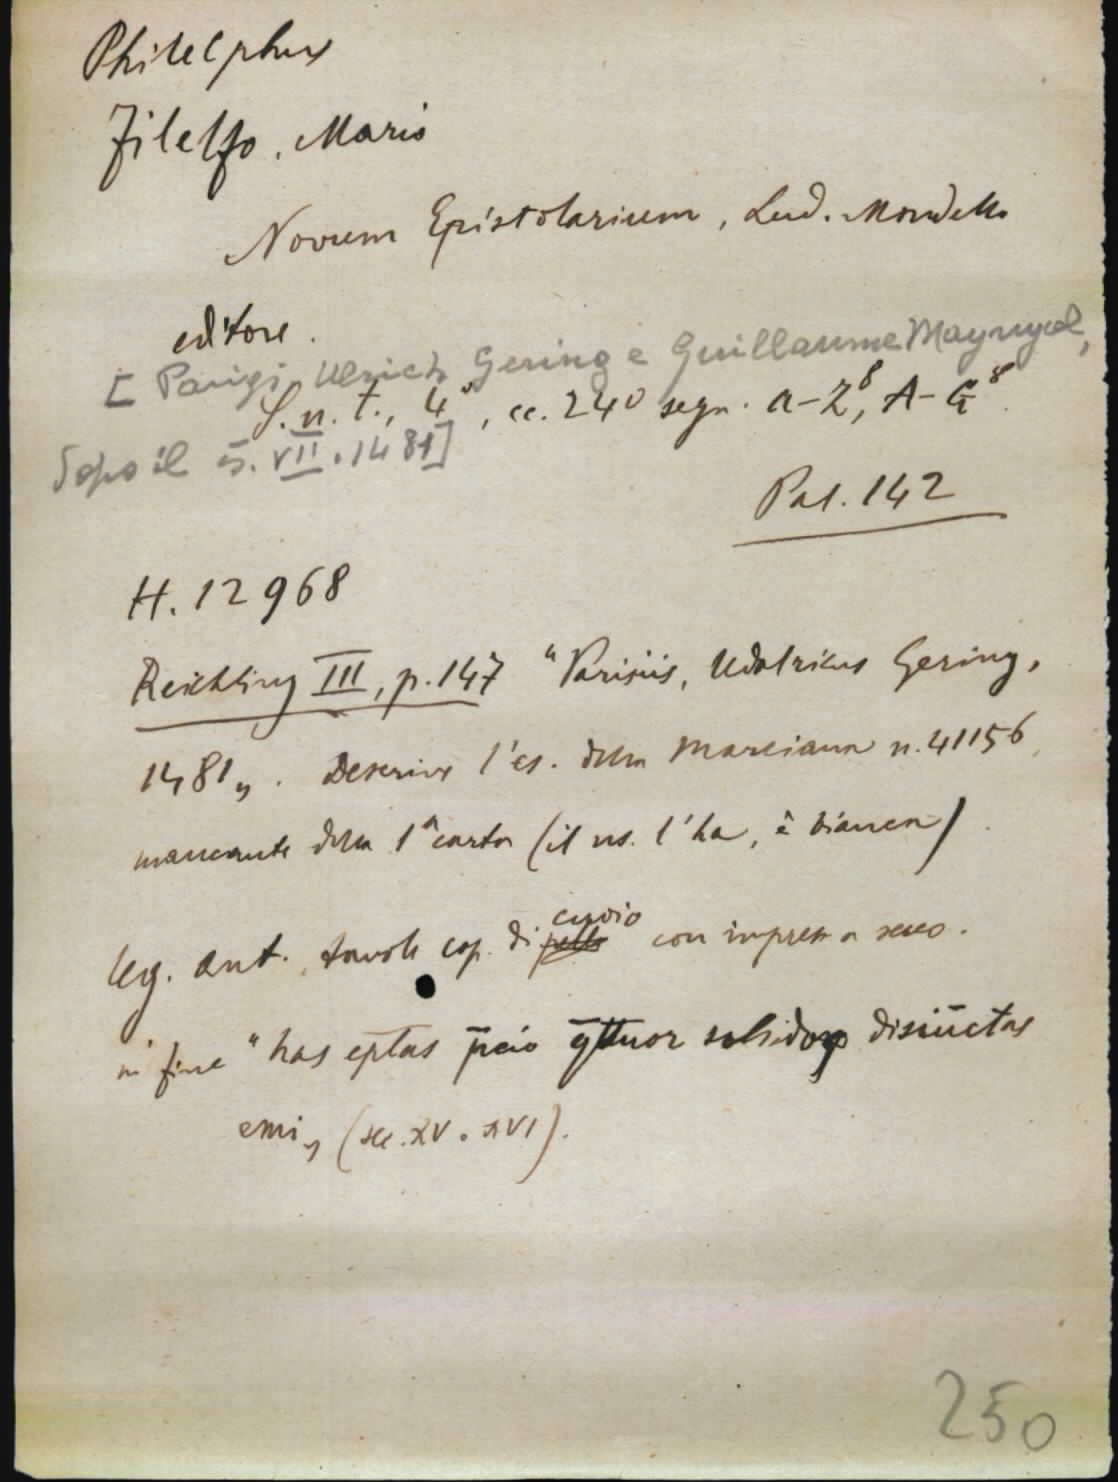 Philelphus
Filelfo, Mario
Novum Epistolarium, Lud. Mondello
editore.
[Parigi, Ulrich Gering e Guillaume Maynyal,
S. n. t., 4°, cc. 240 segn. a-z⁸, A-G⁸.
dopo il 5. VII. 1481]
Pal. 142
H. 12968
Reichling III, p. 147 "Parisiis, Udalricus Gering,
1481„. Descrive l'es. della Marciana n. 41156,
mancante della 1ª carta (il ns. l'ha, è bianca).
leg. ant. tavole cop. di cuoio con impress. a secco.
in fine "has ep̄tas p̄cio q̄ttuor solidoꝝ disiūctas
emi„ (sec. XV-XVI).
250